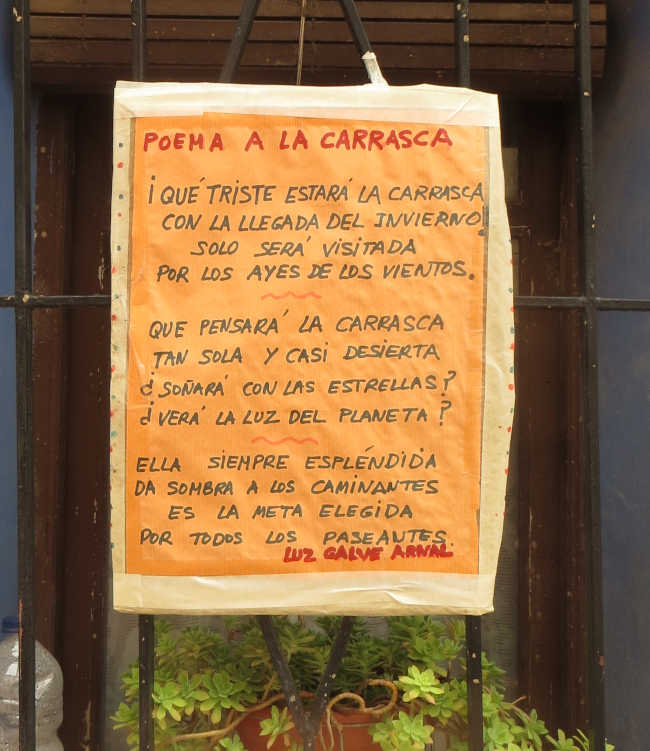 POEMA A LA CARRASCA
¡QUÉ TRISTE ESTARÁ LA CARRASCA
CON LA LLEGADA DEL INVIERNO!
SOLO SERÁ VISITADA
POR LOS AYES DE LOS VIENTOS.
QUE PENSARÁ LA CARRASCA
TAN SOLA Y CASI DESIERTA
¿SOÑARÁ CON LAS ESTRELLAS?
¿VERÁ LA LUZ DEL PLANETA?
ELLA SIEMPRE ESPLÉNDIDA
DA SOMBRA A LOS CAMINANTES
ES LA META ELEGIDA
POR TODOS LOS PASEANTES.
LUZ GALVE ARNAL